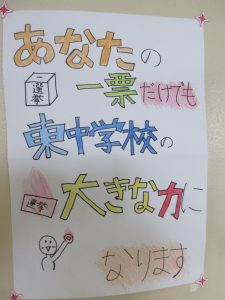 あなたの
選挙
一票だけでも
東中学校の
大きな力に
選挙
なります